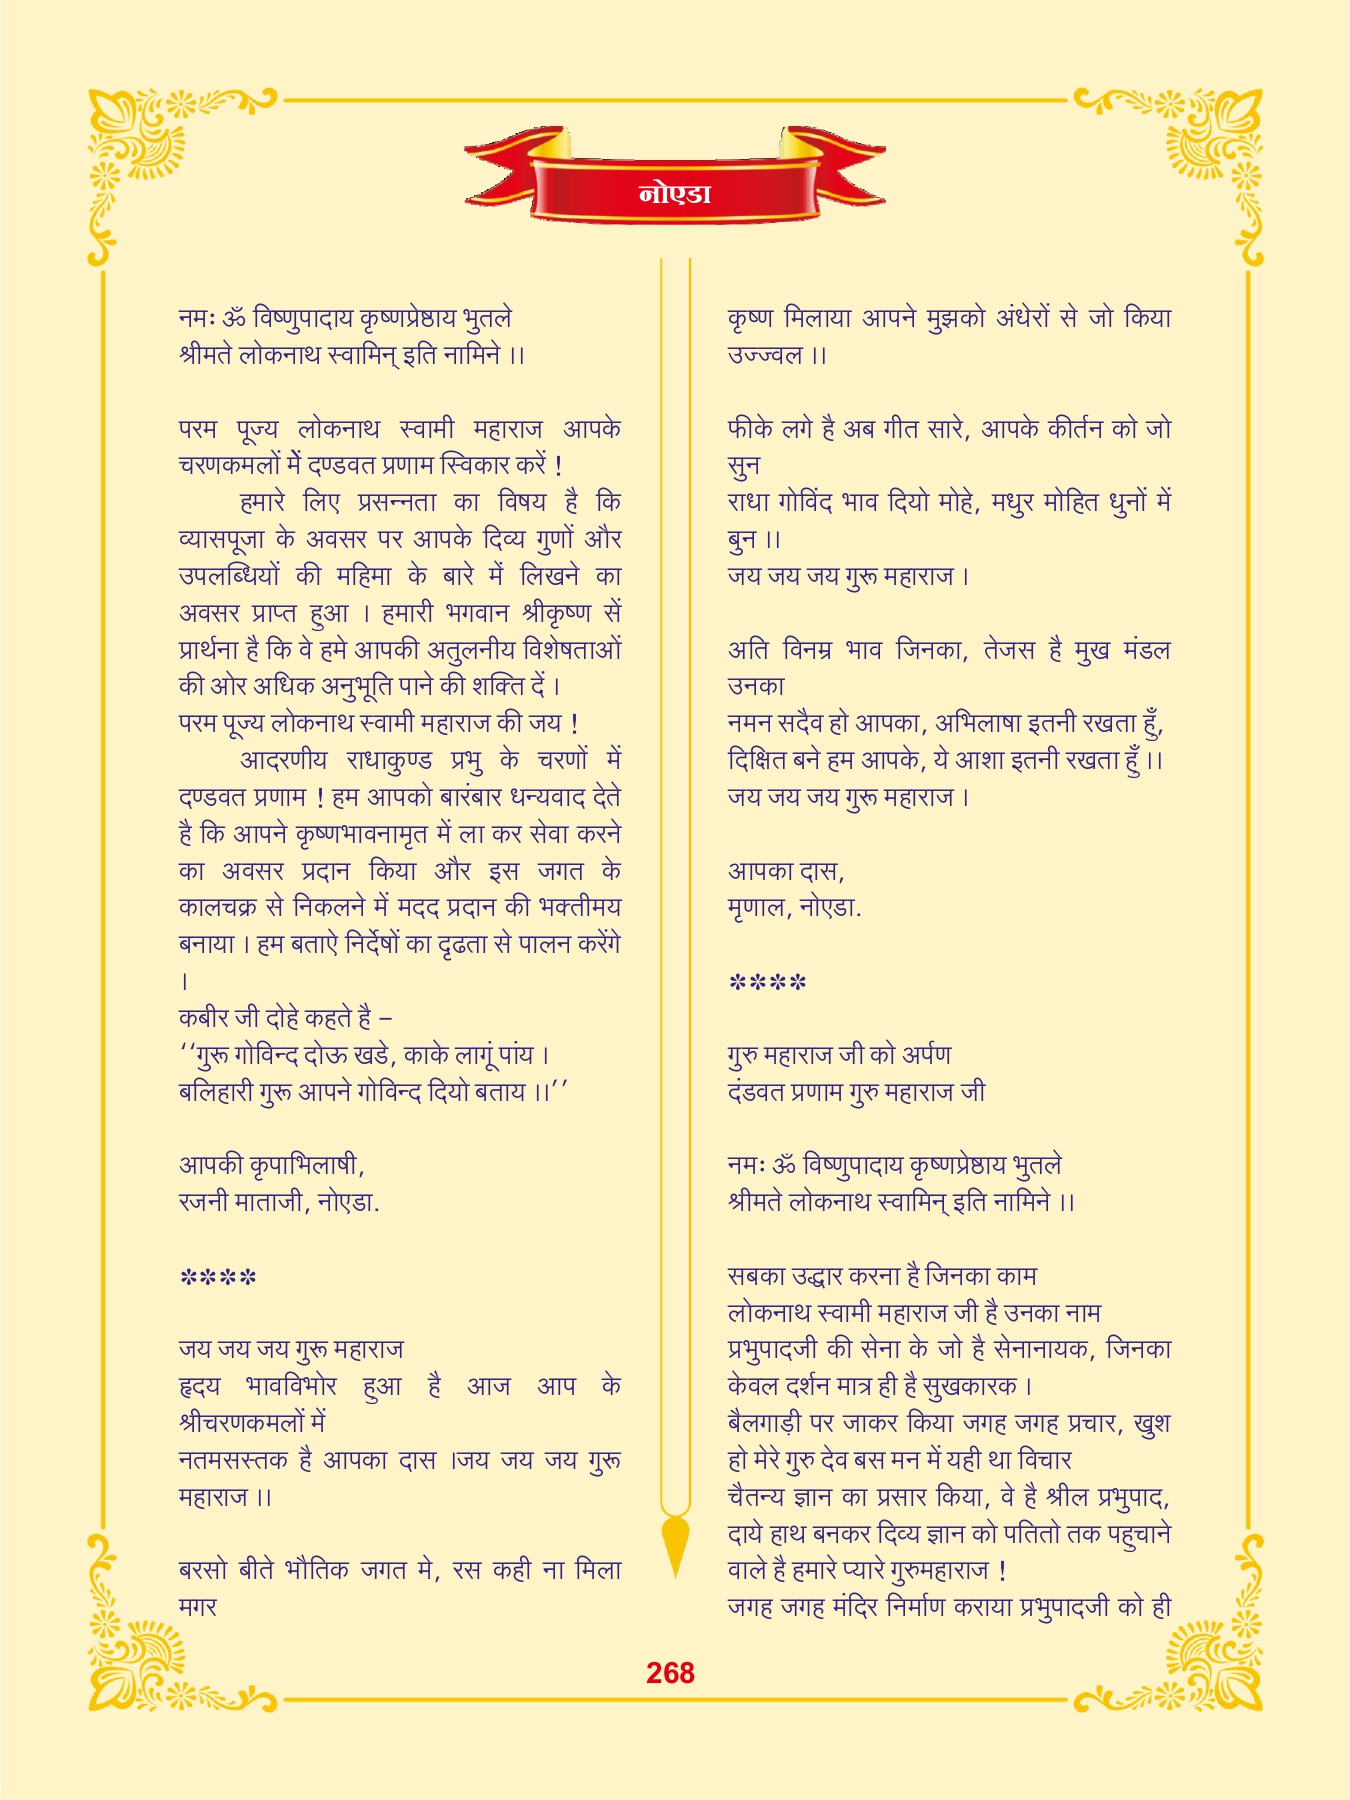 नोएडा
नमः ॐ विष्णुपादाय कृष्णप्रेष्ठाय भुतले
श्रीमते लोकनाथ स्वामिन् इति नामिने ।।
परम पूज्य लोकनाथ स्वामी महाराज आपके
चरणकमलों में दण्डवत प्रणाम स्विकार करें !
हमारे लिए प्रसन्नता का विषय है कि
व्यासपूजा के अवसर पर आपके दिव्य गुणों और
उपलब्धियों की महिमा के बारे में लिखने का
अवसर प्राप्त हुआ । हमारी भगवान श्रीकृष्ण सें
प्रार्थना है कि वे हमे आपकी अतुलनीय विशेषताओं
की ओर अधिक अनुभूति पाने की शक्ति दें ।
परम पूज्य लोकनाथ स्वामी महाराज की जय !
आदरणीय राधाकुण्ड प्रभु के चरणों में
दण्डवत प्रणाम ! हम आपको बारंबार धन्यवाद देते
है कि आपने कृष्णभावनामृत में ला कर सेवा करने
का अवसर प्रदान किया और इस जगत के
कालचक्र से निकलने में मदद प्रदान की भक्तीमय
बनाया । हम बताऐ निर्देषों का दृढता से पालन करेंगे
।
कबीर जी दोहे कहते है –
‘‘गुरू गोविन्द दोऊ खडे, काके लागूं पांय ।
बलिहारी गुरू आपने गोविन्द दियो बताय ।।’’
आपकी कृपाभिलाषी,
रजनी माताजी, नोएडा.
****
जय जय जय गुरू महाराज
हृदय भावविभोर हुआ है आज आप के
श्रीचरणकमलों में
नतमसस्तक है आपका दास ।जय जय जय गुरू
महाराज ।।
बरसो बीते भौतिक जगत मे, रस कही ना मिला
मगर
कृष्ण मिलाया आपने मुझको अंधेरों से जो किया
उज्ज्वल ।।
फीके लगे है अब गीत सारे, आपके कीर्तन को जो
सुन
राधा गोविंद भाव दियो मोहे, मधुर मोहित धुनों में
बुन ।।
जय जय जय गुरू महाराज ।
अति विनम्र भाव जिनका, तेजस है मुख मंडल
उनका
नमन सदैव हो आपका, अभिलाषा इतनी रखता हुँ,
दिक्षित बने हम आपके, ये आशा इतनी रखता हुँ ।।
जय जय जय गुरू महाराज ।
आपका दास,
मृणाल, नोएडा.
****
गुरु महाराज जी को अर्पण
दंडवत प्रणाम गुरु महाराज जी
नमः ॐ विष्णुपादाय कृष्णप्रेष्ठाय भुतले
श्रीमते लोकनाथ स्वामिन् इति नामिने ।।
सबका उद्धार करना है जिनका काम
लोकनाथ स्वामी महाराज जी है उनका नाम
प्रभुपादजी की सेना के जो है सेनानायक, जिनका
केवल दर्शन मात्र ही है सुखकारक ।
बैलगाड़ी पर जाकर किया जगह जगह प्रचार, खुश
हो मेरे गुरु देव बस मन में यही था विचार
चैतन्य ज्ञान का प्रसार किया, वे है श्रील प्रभुपाद,
दाये हाथ बनकर दिव्य ज्ञान को पतितो तक पहुचाने
वाले है हमारे प्यारे गुरुमहाराज !
जगह जगह मंदिर निर्माण कराया प्रभुपादजी को ही
268